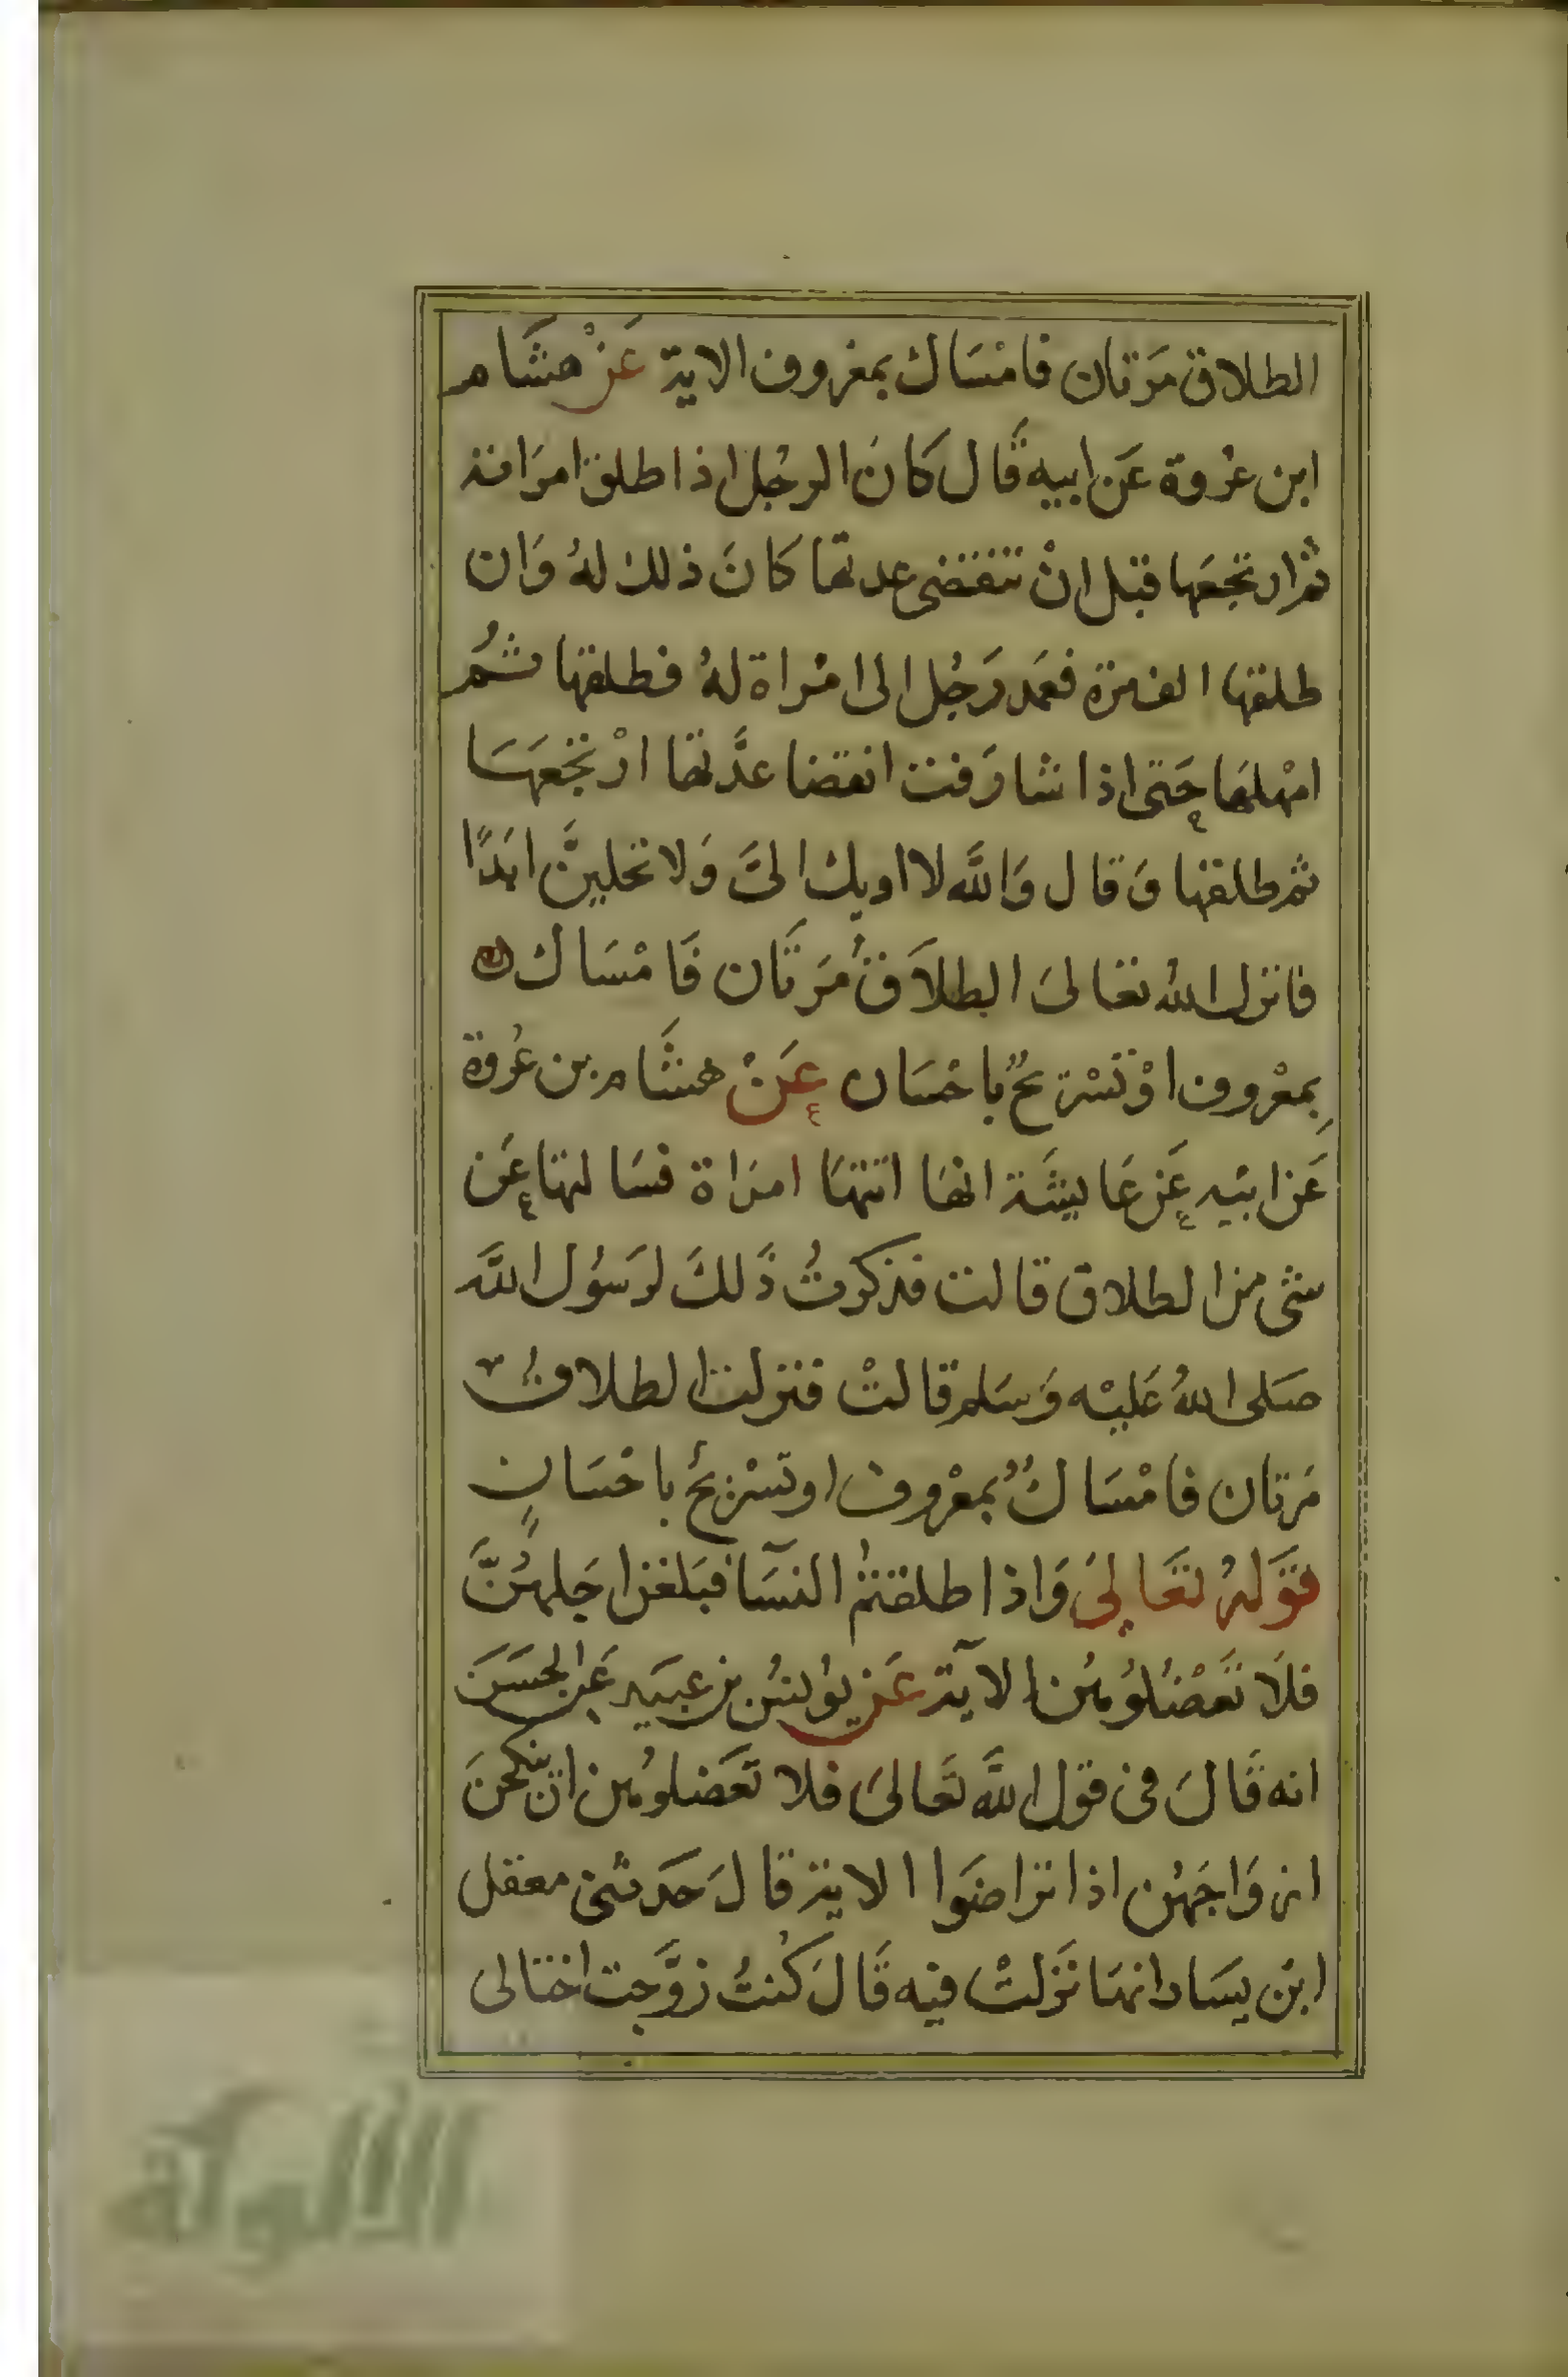 الطلاق مَرتان فامْسَاك بمعْروف الاية عَنْ هشَام
ابن عُروة عَن ابيه قَال كَانَ الرجُل اذا طلق امرَاته
ثمُ ارتجَعَها قبل انْ تنقضى عدتهَا كَانَ ذلك لهُ وَان
طلقها الف مرة فعَمد رَجُل الى امْراة لهُ فطلقها ثُم
امْهلهَا حَتى اذا شارَفت انقضا عدَّتها ارْتجَعَهَا
ثم طلقها وَقال وَاللَّه لا اويك الىَّ وَلا تحلينَّ ابَدًا
فانزل اللهُ تعَالىَ الطلاَقُ مَرتَان فَامْسَاك
بِمعْروف اوْ تسْريحٌ باحْسَان عَنْ هشَام بن عُروة
عَن ابيْه عَن عَايشَة انهَا اتتهَا امرَاة فسَالتها عَن
شى من الطلاق قالت فذكرتُ ذَلكَ لرَسُول اللَّه
صَلى اللهُ عَليْه وَسَلم قالتْ فنزلت الطلاقُ
مَرتان فامْسَاكٌ بمعْروف او تسْريحٌ باحْسَانٍ
قوَلهُ تعَالىَ وَاذا طلقتمُ النسَآ فبَلغن اجَلهُنَّ
فلَا تَعْضُلوُهُن الآية عَن يوُنسُ بن عبَيد عَن الحسَنَ
انه قَالَ فى قول اللَّه تَعَالىَ فلا تعَضلوُهن ان ينكحنَ
ازوَاجَهُن اذا تراضَوا الاية قالَ حَدثنى معقل
ابنْ يسَار انهَا نَزلتْ فيه قَالَ كُنتُ زوَّجت اختالى
الألوكة